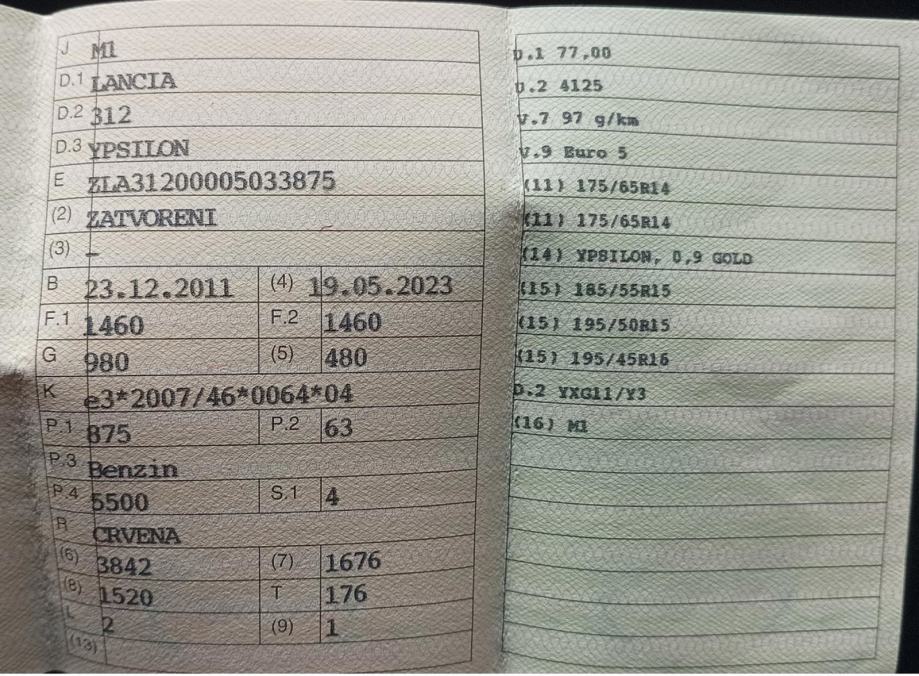 J M1
D.1 LANCIA
D.2 312
D.3 YPSILON
E ZLA31200005033875
(2) ZATVORENI
(3) –
B 23.12.2011 (4) 19.05.2023
F.1 1460 F.2 1460
G 980 (5) 480
K e3*2007/46*0064*04
P.1 875 P.2 63
P.3 Benzin
P.4 5500 S.1 4
R CRVENA
(6) 3842 (7) 1676
(8) 1520 T 176
L 2 (9) 1
(13)
U.1 77,00
U.2 4125
V.7 97 g/km
V.9 Euro 5
(11) 175/65R14
(11) 175/65R14
(14) YPSILON, 0,9 GOLD
(15) 185/55R15
(15) 195/50R15
(15) 195/45R16
D.2 YXG11/Y3
(16) M1